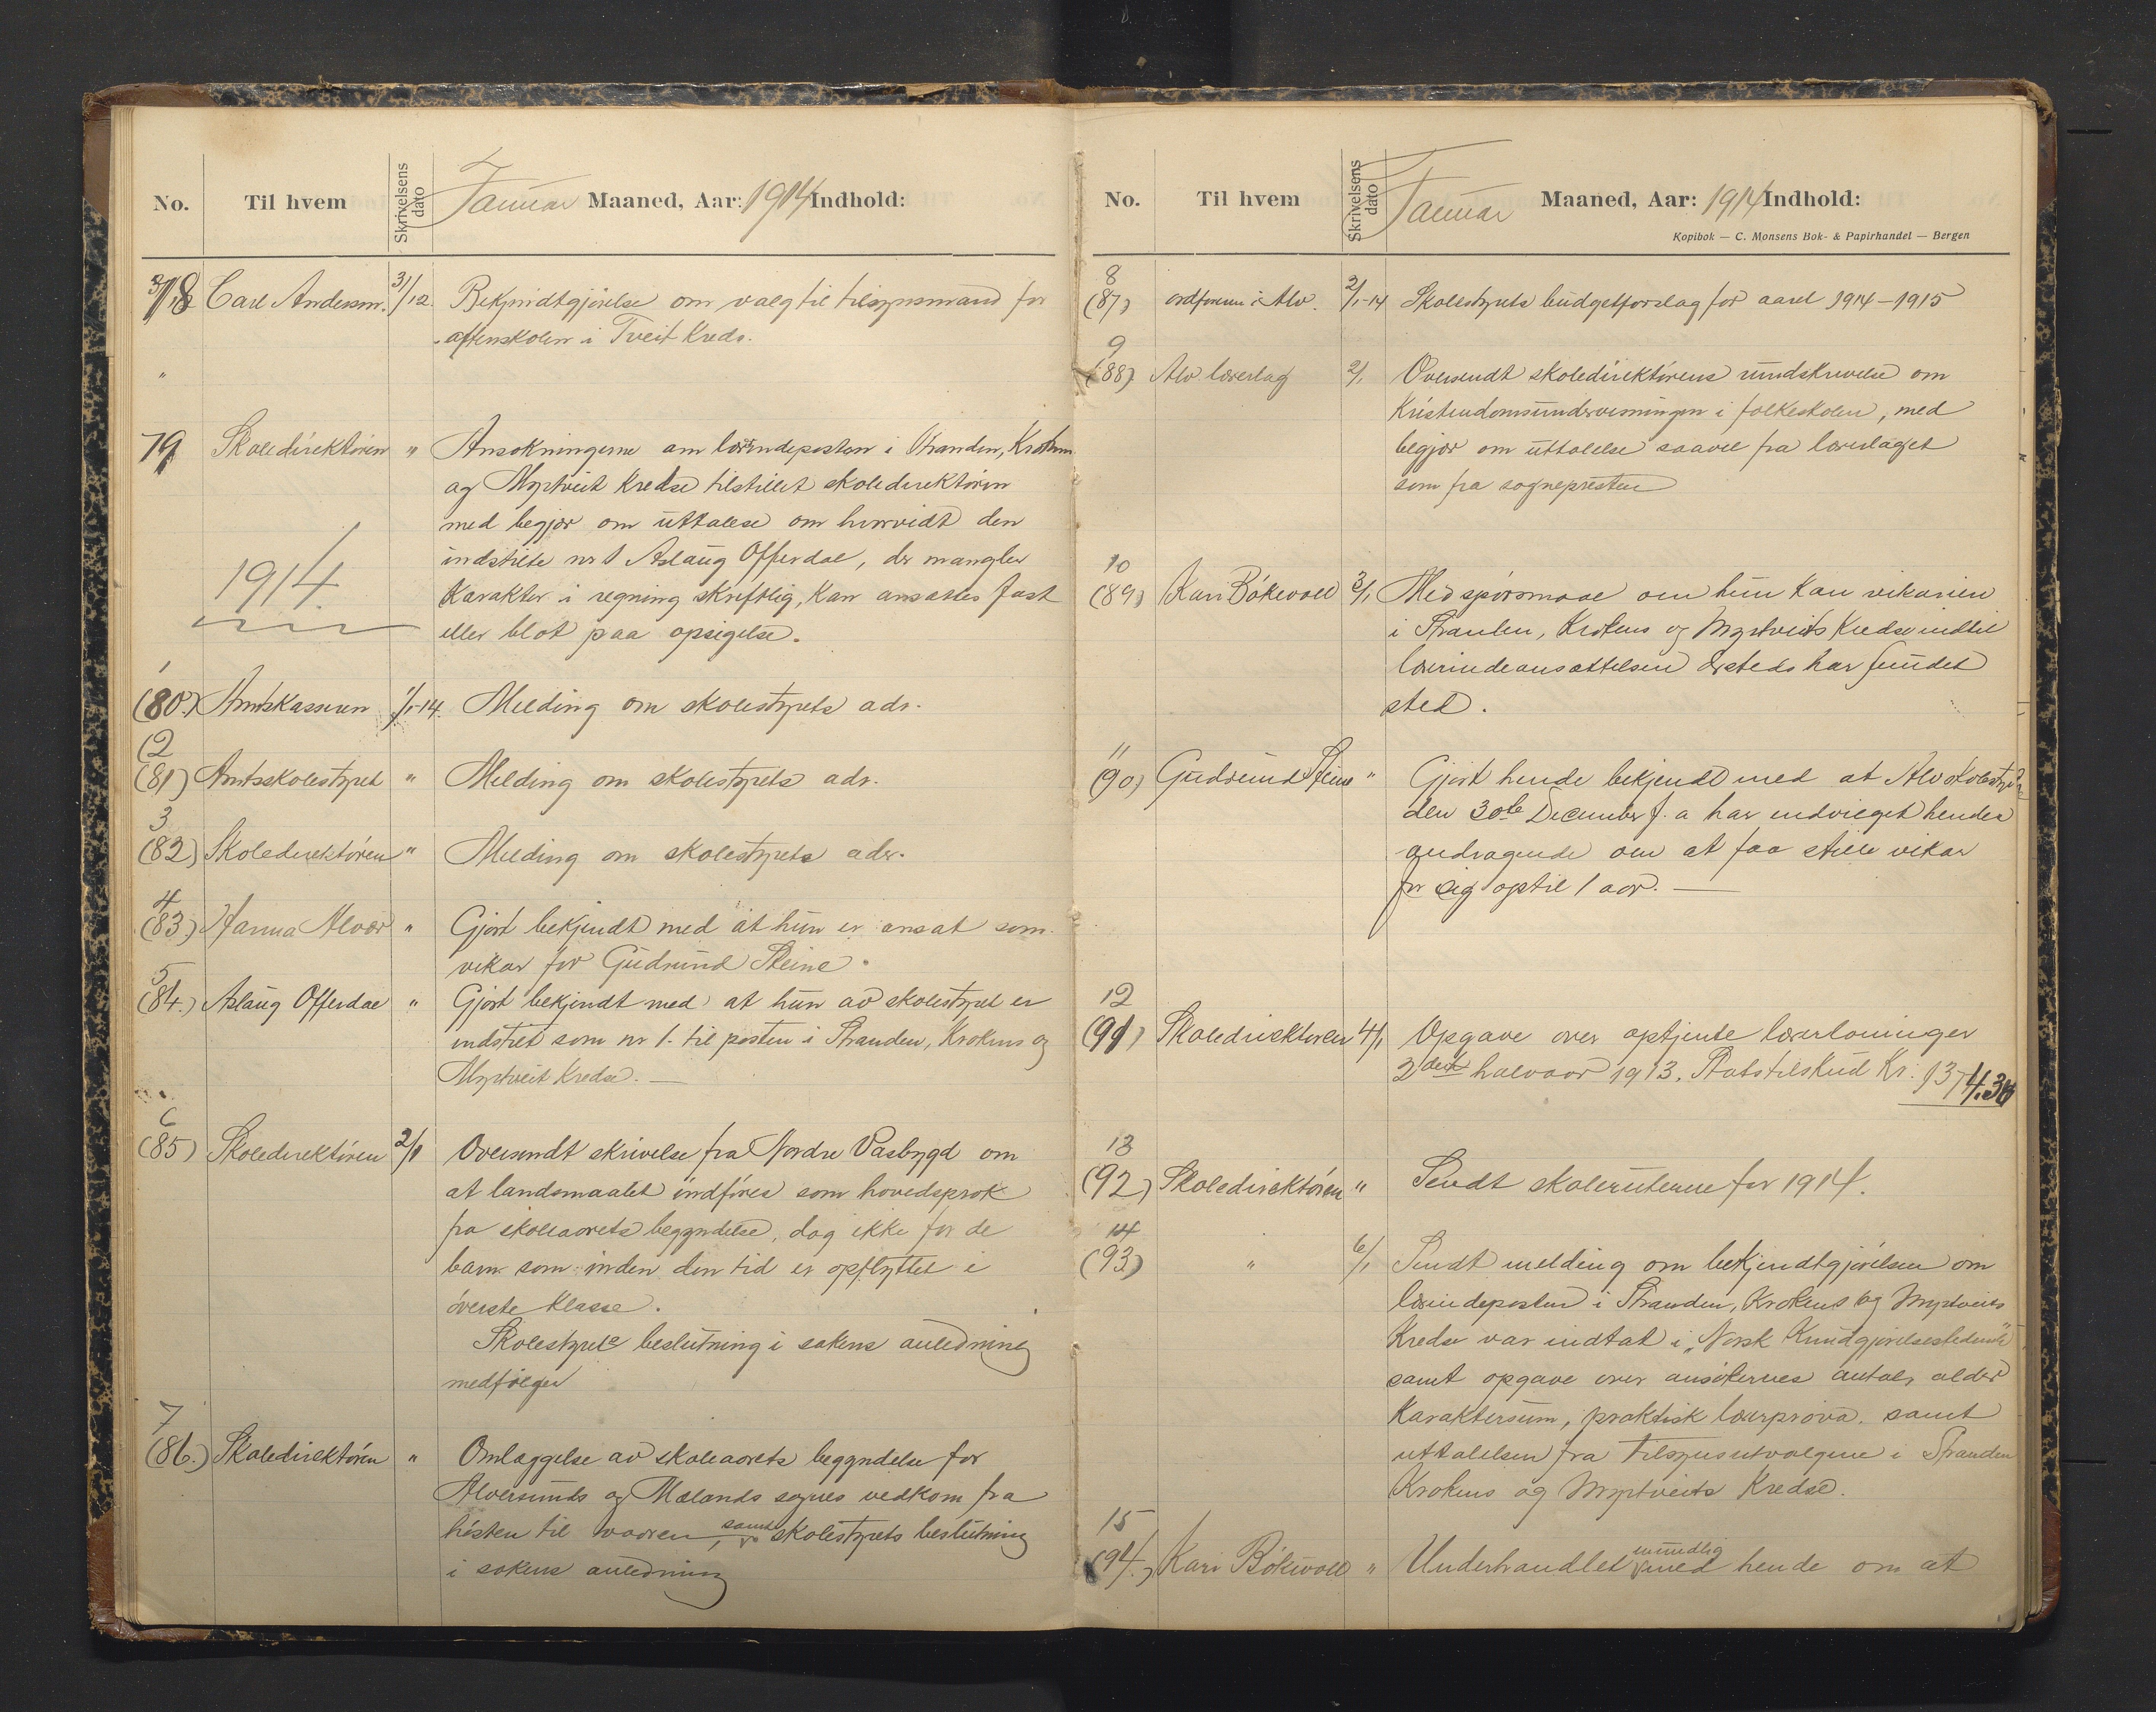 No. Til hvem Skrivelsens dato Januar Maaned, Aar: 1914 Indhold:
78 Carl Andersen. 31/12. Bekjendtgjörelse om valg til tilsynsmand for
aftenskolen i Tveit Kreds.
"
79 Skoledirektören " Ansökningerne om lærerindeposten i Stranden, Krokens
og Myrtveit Kredse tilstillet skoledirektören
med begjær om uttalelse om hvorvidt den
indstilte nr 1 Aslaug Offerdal, der mangler
Karakter i regning skriftlig, kan ansættes fast
eller blot paa opsigelse.
1914.
1
(80.) Amtskassereren 1/1-14. Melding om skolestyrets adr.
(2
(81) Amtsskolestyret " Melding om skolestyrets adr.
3
(82) Skoledirektören " Melding om skolestyrets adr.
4
(83) Hanna Alver " Gjort bekjendt med at hun er ansat som
vikar for Gudrund Steine.
5
(84.) Aslaug Offerdal " Gjort bekjendt med at hun av skolestyret er
indstilet som nr 1. til posten i Stranden, Krokens og
Myrtveit Kredse. —
6
(85) Skoledirektören 2/1 Oversendt skrivelse fra Nordre Vasbygd om
at landsmaalet indföres som hovedsprok
fra skoleaarets begyndelse, dog ikke for de
barn som inden den tid er opflyttet i
överste Klasse.
Skolestyrets beslutning i sakens anledning
medfölger
7
(86.) Skoledirektören " Omlæggelse av skoleaarets begyndelse for
Alversunds og Mælands sognes vedkom. fra
hösten til vaaren, samt skolestyrets beslutning
i sakens anledning
No. Til hvem Skrivelsens dato Januar Maaned, Aar: 1914 Indhold:
Kopibok — C. Monsens Bok- & Papirhandel — Bergen
8
(87) ordföreren i Alv. 2/1-14 Skolestyrets budgetforslag for aaret 1914-1915
9
(88) Alv. lærerlag 2/1 Oversendt skoledirektörens rundskrivelse om
Kristendomsundervisningen i folkeskolen, med
begjær om uttalelse saavel fra lærerlaget
som fra sognepresten
10
(89) Kari Bökevoll 3/1 Med spörsmaal om hun kan vikariere
i Stranden, Krokens og Myrtveits Kredse indtil
lærerindeansættelsen dersteds har fundet
sted.
11
(90) Gudrund Steine " Gjort hende bekjendt med at Alv. skolestyre
den 30te December f. a har indvilget hendes
andragende om at faa stille vikar
for sig optil 1 aar. —
12
(91) Skoledirektören 4/1 Opgave over optjente lærerlöninger
2det halvaar 1913. Statstilskud Kr. 1374.30
13
(92) Skoledirektören " Sendt skoleruterne for 1914.
14
(93) " 6/1 Sendt melding om bekjendtgjörelsen om
lærerindeposten i Stranden, Krokens og Myrtveits
Kredse var indtat i "Norsk Kundgjörelsestidende"
samt opgave over ansökernes antal, alder
Karaktersum, praktisk lærerpröve. samt
uttalelsen fra Tilsynsutvalgene i Stranden
Krokens og Myrtveits Kredse.
15
(94.) Kari Bökevoll " Underhandlet mundlig med hende om at